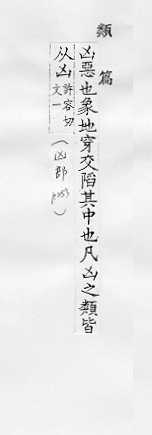 類篇
凶惡也象地穿交陷其中也凡凶之類皆
从凶許容切
文一
(凶部